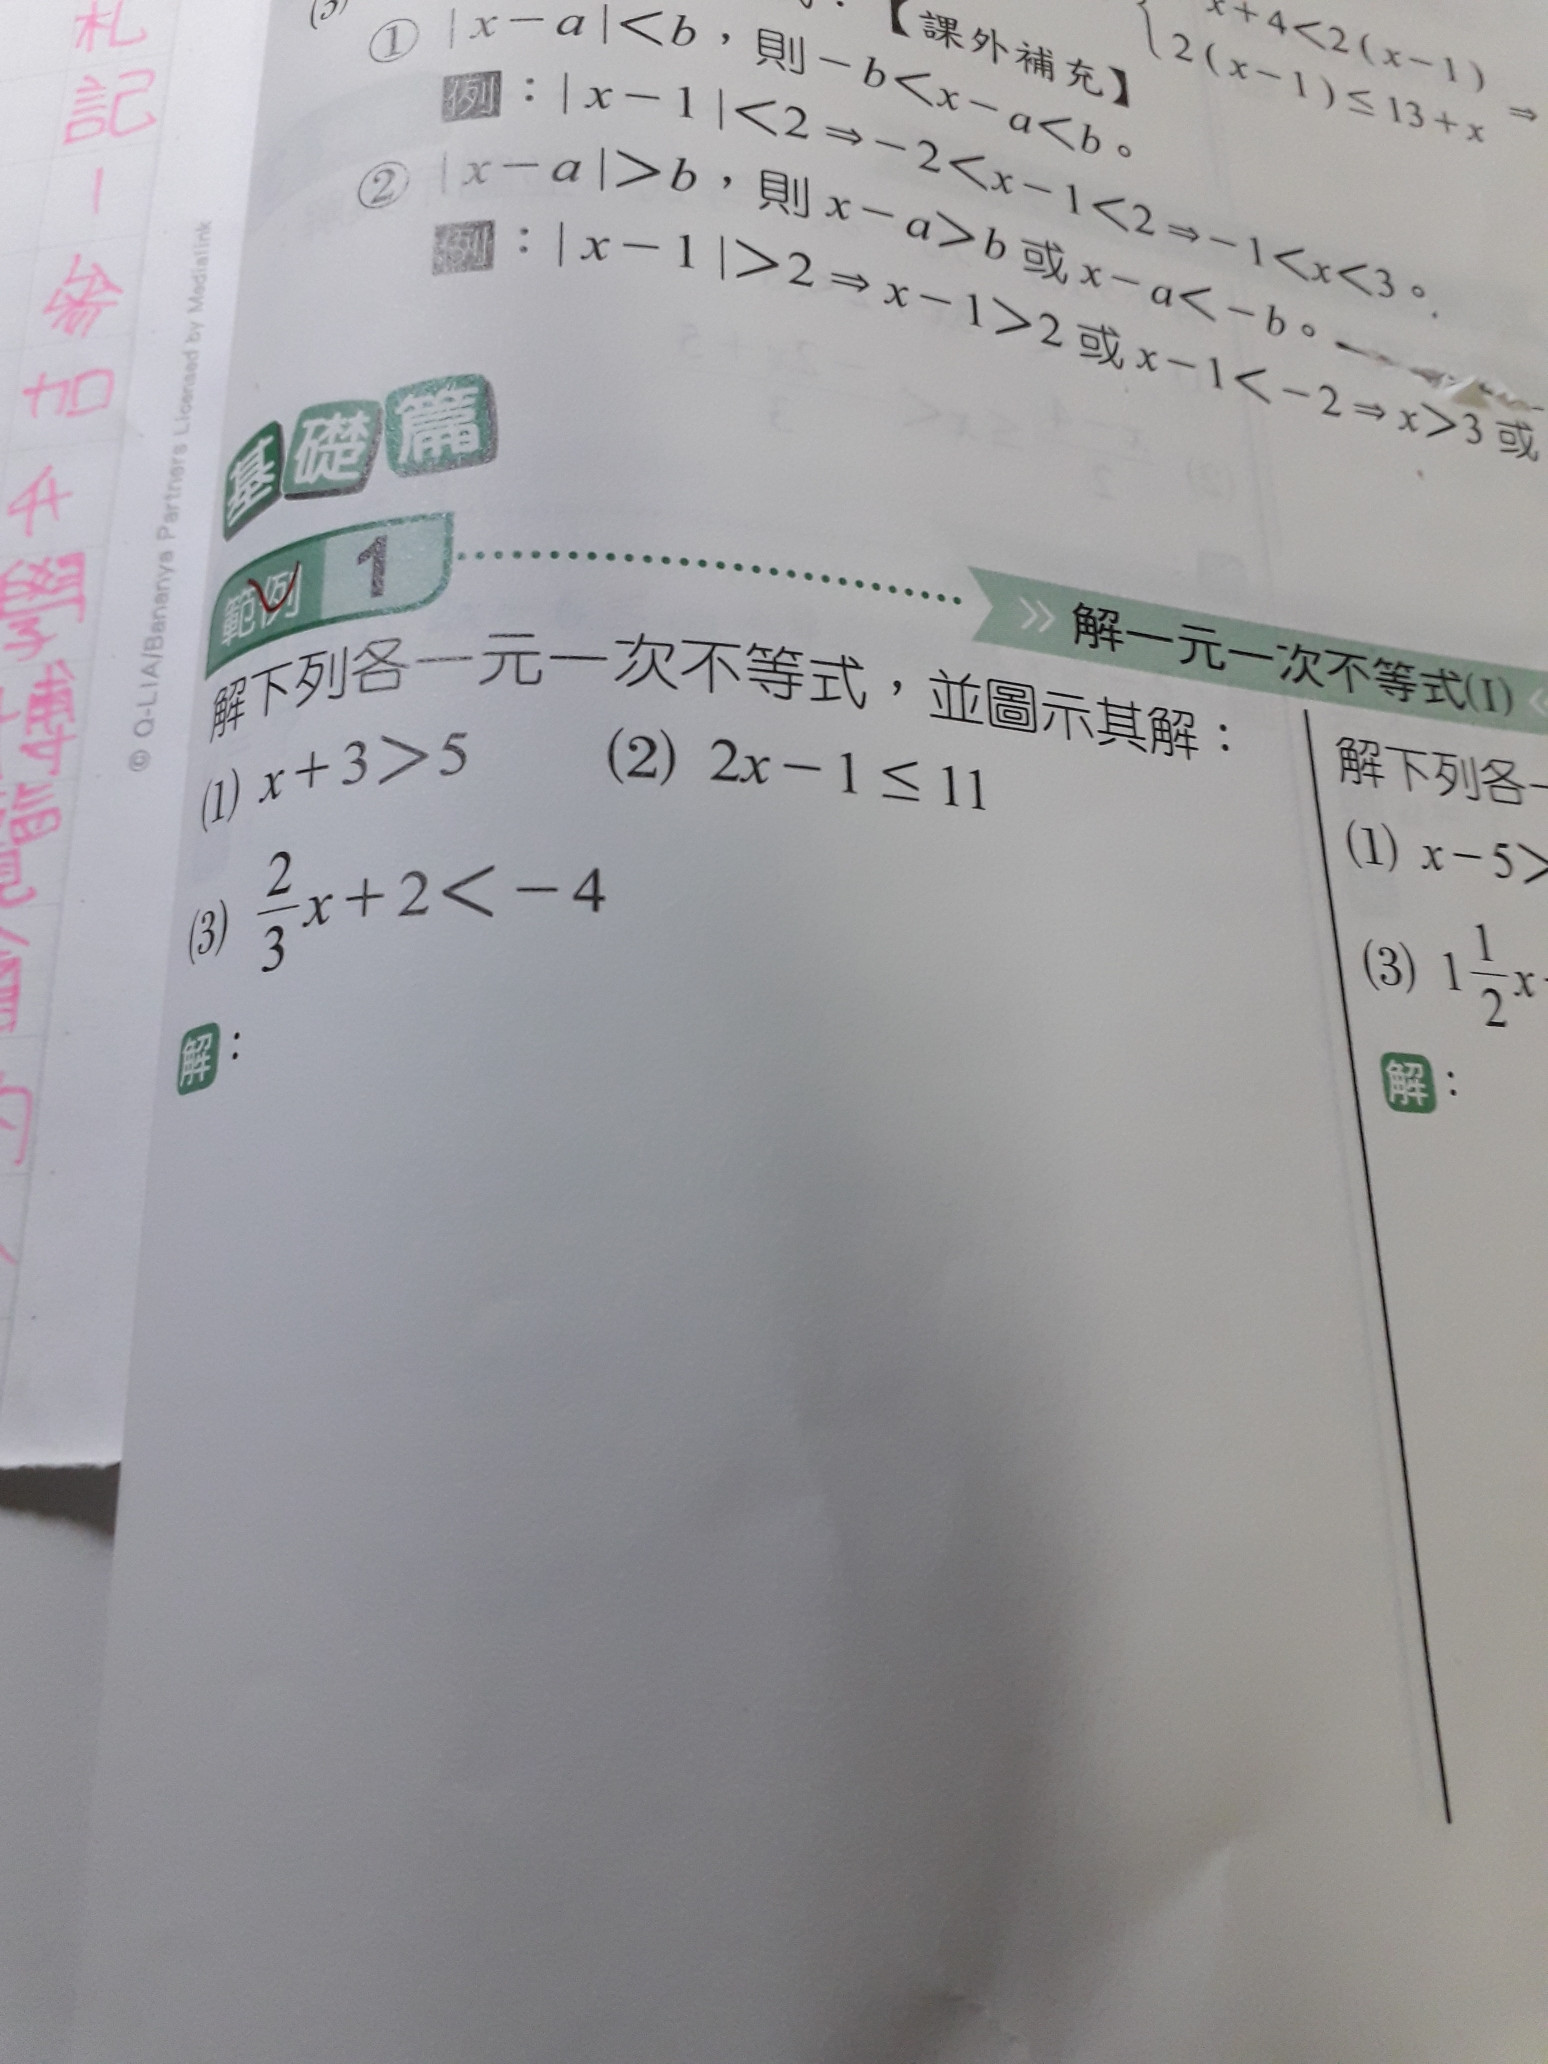 (3)
【課外補充】
① |x－a|<b，則－b<x－a<b。
例：|x－1|<2⇒－2<x－1<2⇒－1<x<3。
② |x－a|>b，則x－a>b或x－a<－b。
例：|x－1|>2⇒x－1>2或x－1<－2⇒x>3或
x+4<2(x－1)
2(x－1)≤13+x ⇒
基礎篇
範例 1
解一元一次不等式(1)
解下列各一元一次不等式，並圖示其解：
(1) x+3>5 (2) 2x－1≤11
(3) 2/3x+2<－4
解：
解下列各一
(1) x－5>
(3) 1 1/2x
解：
© Q-LIA/Bananya Partners Licensed by Medialink
札記
參加